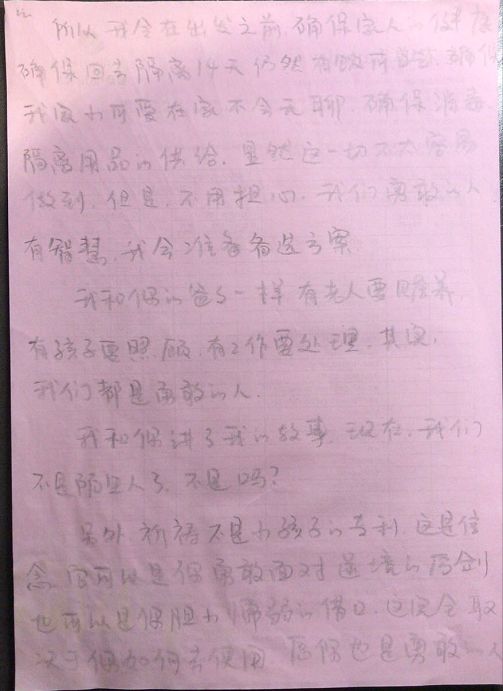 所以我会在出发之前，确保家人的健康
确保回去隔离14天仍然有
我家小可爱在家不会无聊，确保消毒
隔离用品的供给。显然这一切不太容易
做到，但是，不用担心，我们勇敢的人
有智慧，我会准备备选方案。
我和你的爸爸一样有老人要赡养，
有孩子要照顾，有工作要处理，其实，
我们都是勇敢的人.
我和你讲了我的故事，现在，我们
不是陌生人了，不是吗？
另外，祈祷不是小孩子的专利，这是信
念，它可以是你勇敢面对逆境的
也可以是你胆小懦弱的借口，这完全取
决于你如何去使用 愿你也是勇敢的人